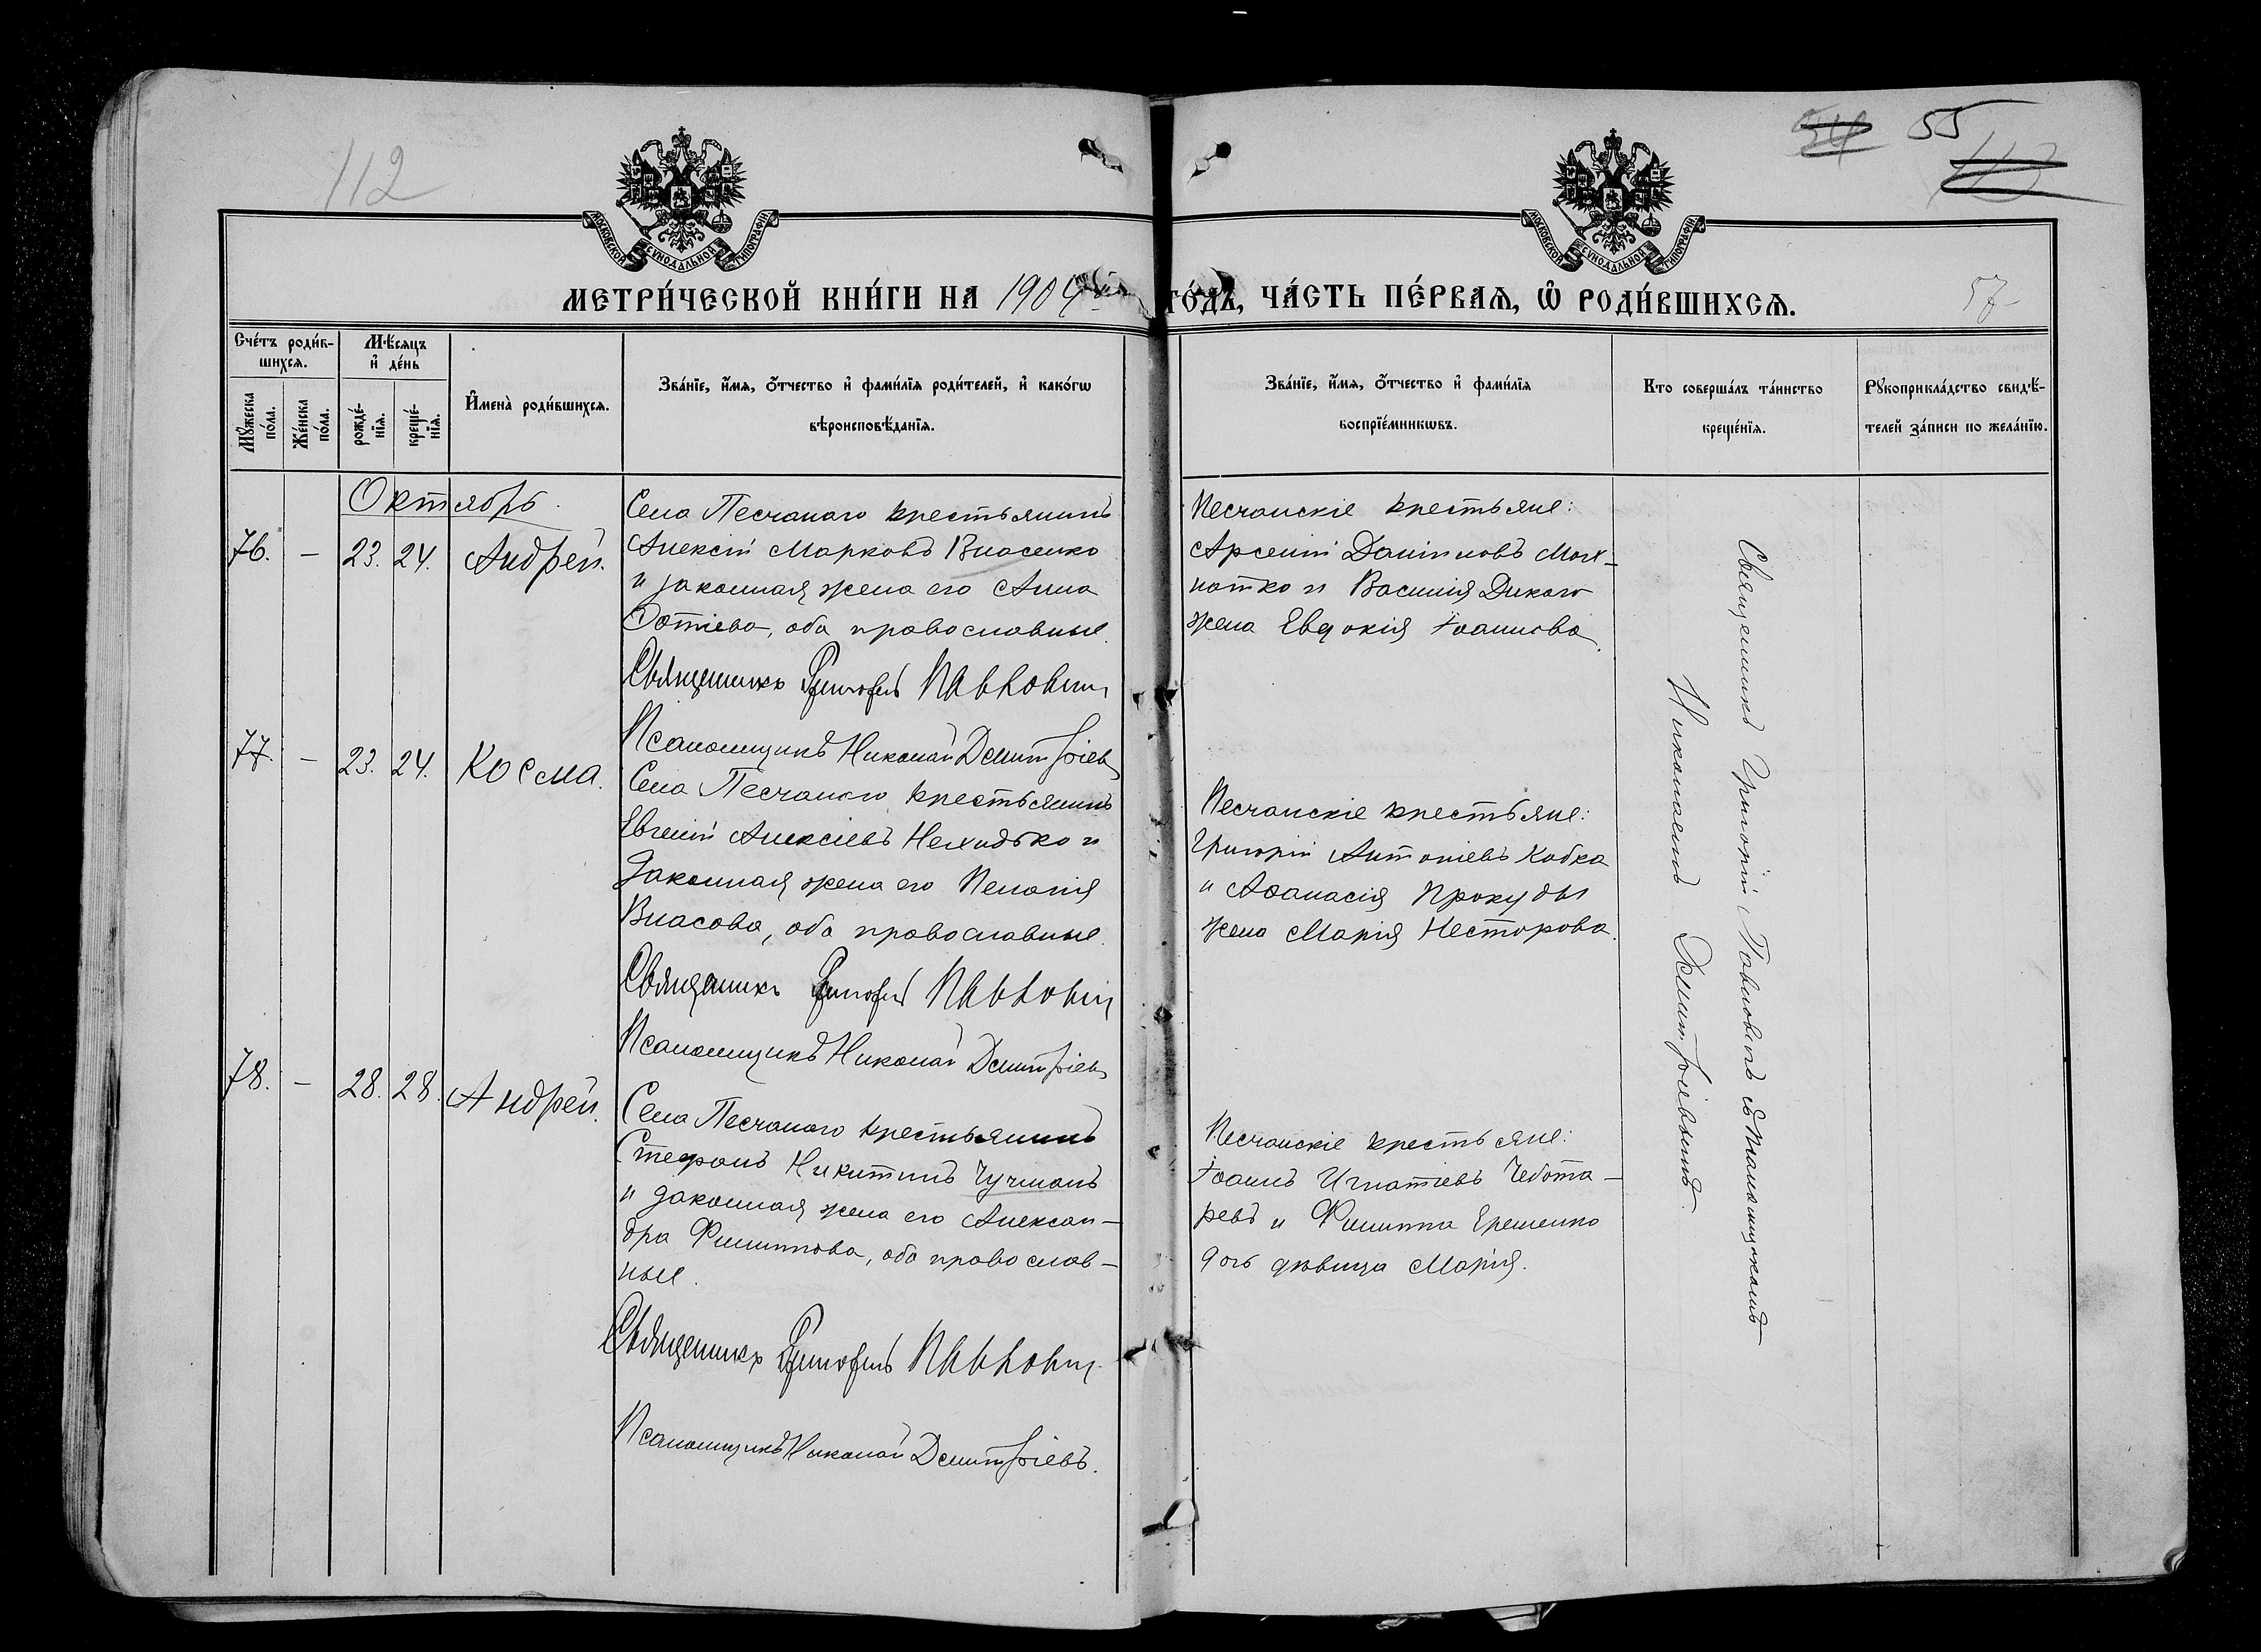 112
55
МОСКОВСКОЙ СУНОДАЛЬНОЙ ТИПОГРАФІИ
МОСКОВСКОЙ СУНОДАЛЬНОЙ ТИПОГРАФІИ
МЕТРИ́ЧЕСКОЙ КНИ́ГИ НА 1904 ГО́ДЪ, ЧА́СТЬ ПЕ́РВАѦ, Ѽ РОДИ́ВШИХСѦ.
57
Сче́тъ роди́вшихсѧ.
Мꙋ́жеска по́ла.
Же́нска по́ла.
Мѣ́сяцъ и҆ де́нь
рожде́нїѧ.
креще́нїѧ.
И҆мена̀ роди́вшихсѧ.
Зва́нїе, и҆́мѧ, ѻ҆́тчество и҆ фами́лїѧ роди́телей, и҆ како́гѡ
вѣроисповѣ́данїѧ.
Зва́нїе, и҆́мѧ, ѻ҆́тчество и҆ фами́лїѧ
воспрїе́мникѡвъ.
Кто соверша́лъ та́инство
креще́нїѧ.
Рꙋкоприкла́дство свидѣ́-
телей за́писи по жела́нїю.
Октябрь.
76. — 23. 24. Андрей.
Села Песчанаго крестьянинъ
Алексій Марковъ Власенко
и законная жена его Анна
Фотіева, оба православные.
Священникъ Григорій Павловичъ
Псаломщикъ Николай Дмитріевъ
Песчанскіе крестьяне:
Арсеній Даніиловъ Мох-
натко и Василія Дикаго
жена Евдокія Іоаннова.
77. — 23. 24. Косма.
Села Песчанаго крестьянинъ
Евгеній Алексіевъ Нехидько и
законная жена его Пелагія
Власова, оба православные.
Священникъ Григорій Павловичъ
Псаломщикъ Николай Дмитріевъ
Песчанскіе крестьяне:
Григорій Антоніевъ Кобка
и Афанасія Прокуды
жена Марія Несторова.
78. — 28. 28. Андрей.
Села Песчанаго крестьянинъ
Стефанъ Никитинъ Чучманъ
и законная жена его Алексан-
дра Филиппова, оба православ-
ные.
Священникъ Григорій Павловичъ
Псаломщикъ Николай Дмитріевъ.
Песчанскіе крестьяне:
Іоаннъ Игнатіевъ Чебота-
ревъ и Филиппа Ерешенко
дочь дѣвица Марія.
Священникъ Григорій Павловичъ съ псаломщикомъ
Николаемъ Дмитріевымъ.